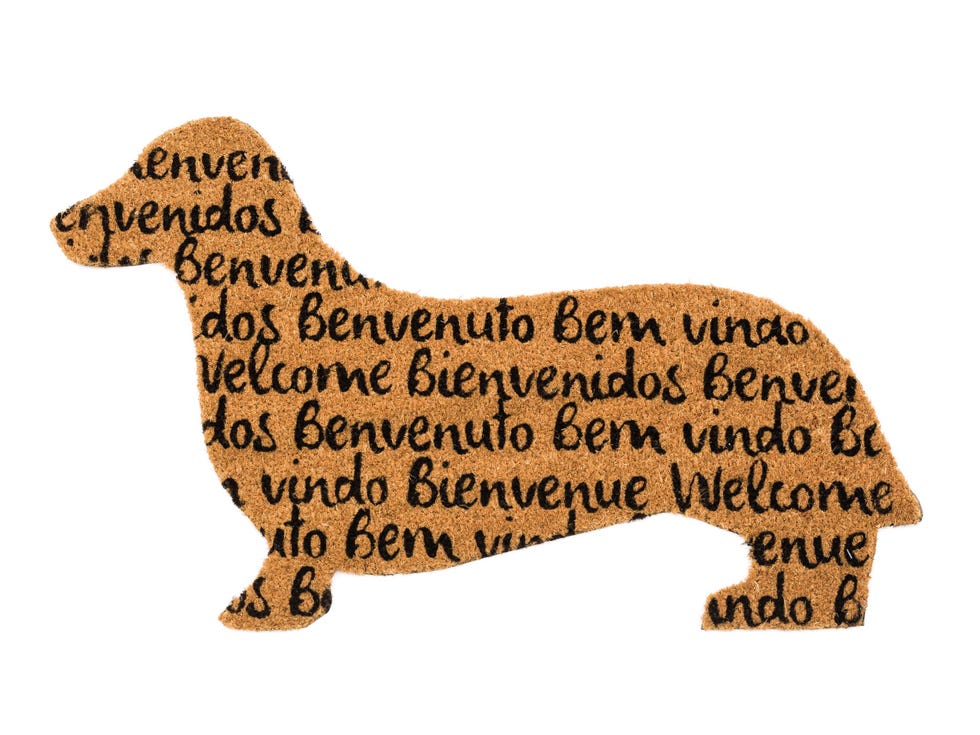 ienven
envenidos
Benvenu
idos Benvenuto Bem vindo
Welcome Bienvenidos Benven
dos Benvenuto Bem vindo Be
m vindo Bienvenue Welcome
uto Bem vind
enue
os B
indo B